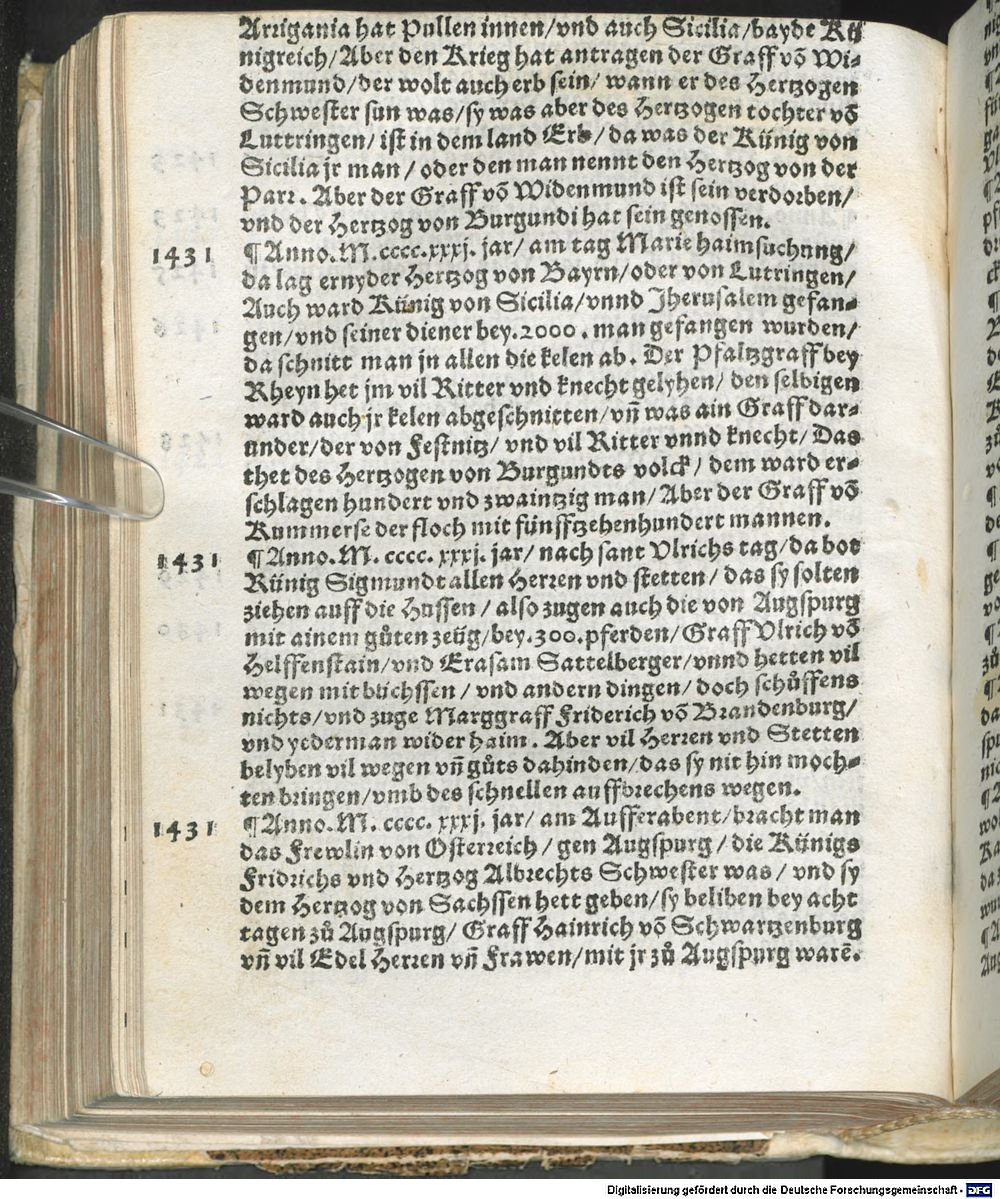 Arrigania hat Pullen innen/vnd auch Sicilia/bayde Kü
nigreich/Aber den Krieg hat antragen der Graff võ Wi-
denmund/der wolt auch erb sein/ wann er des Hertzogen
Schwester sun was/sy was aber des Hertzogen tochter võ
Luttringen/ ist in dem land Erb/ da was der Künig von
Sicilia jr man/ oder den man nennt den Hertzog von der
Parr. Aber der Graff võ Widenmund ist sein verdorben/
vnd der Hertzog von Burgundi hat sein genossen.
1431 ¶Anno.M.cccc.xxxj. jar/ am tag Marie haimsuchung/
da lag ernyder Hertzog von Bayrn/oder von Lutringen/
Auch ward Künig von Sicilia/vnnd Jherusalem gefan-
gen/vnd seiner diener bey.2000. man gefangen wurden/
da schnitt man jn allen die kelen ab. Der Pfaltzgraff bey
Rheyn het jm vil Ritter vnd knecht gelyhen/ den selbigen
ward auch jr kelen abgeschnitten/ vñ was ain Graff dar-
under/der von Festnitz/ vnd vil Ritter vnnd knecht/ Das
thet des Hertzogen von Burgundts volck/ dem ward er-
schlagen hundert vnd zwaintzig man/ Aber der Graff võ
Kummerse der floch mit fünfftzehenhundert mannen.
1431 ¶Anno.M. cccc. xxxj. jar/ nach sant Vlrichs tag/da bot
Künig Sigmundt allen Herren vnd stetten/ das sy solten
ziehen auff die Hussen/ also zugen auch die von Augspurg
mit ainem gůten zeüg/bey.300.pferden/Graff Vlrich võ
Helffenstain/vnd Erasam Sattelberger/vnnd hetten vil
wegen mit büchssen/ vnd andern dingen/ doch schůffens
nichts/vnd zuge Marggraff Friderich võ Brandenburg/
vnd yederman wider haim. Aber vil Herren vnd Stetten
belyben vil wegen vñ gůts dahinden/das sy nit hin moch-
ten bringen/vmb des schnellen auffbrechens wegen.
1431 ¶Anno.M. cccc. xxxj. jar/ am Aufferabent/bracht man
das Frewlin von Osterreich/gen Augspurg/ die Künigs
Fridrichs vnd Hertzog Albrechts Schwester was/ vnd sy
dem Hertzog von Sachssen hett geben/sy beliben bey acht
tagen zů Augspurg/ Graff Hainrich võ Schwartzenburg
vñ vil Edel Herren vñ Frawen/mit jr zů Augspurg warẽ.
Digitalisierung gefördert durch die Deutsche Forschungsgemeinschaft - DFG